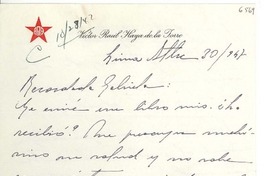 6569
10/28/47
Victor Raúl Haya de la Torre
C
Lima, Stbre 30/947
Recordada Gabriela:
Le envié un libro mío. ¿Lo
recibió? Me preocupa muchí-
simo su salud y no sabe